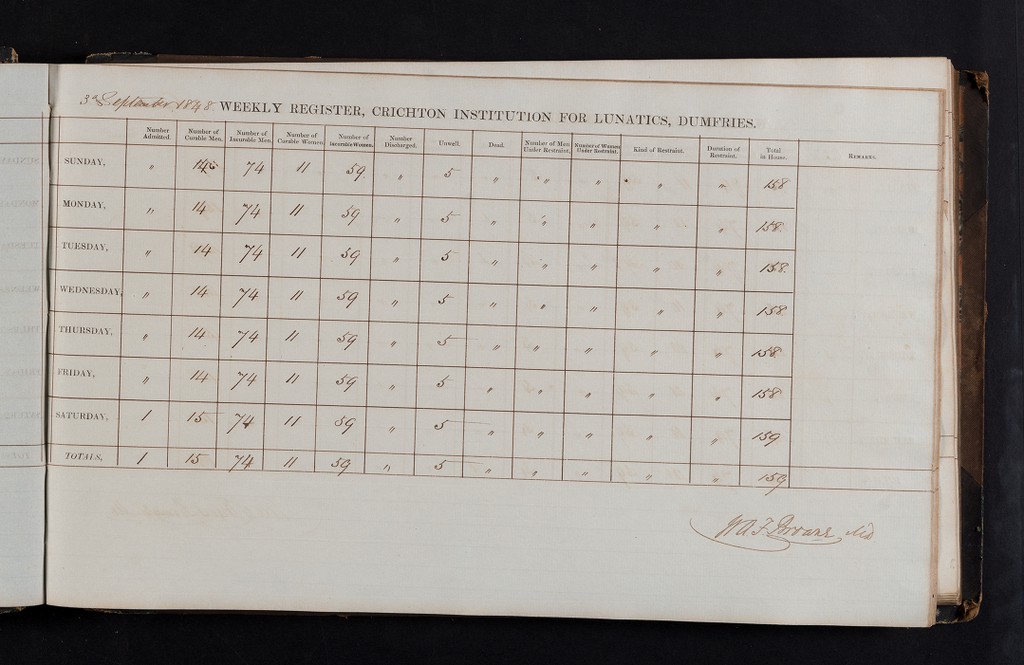 3d September 1848 WEEKLY REGISTER, CRICHTON INSTITUTION FOR LUNATICS, DUMFRIES.
Number Admitted. Number of Curable Men. Number of Incurable Men. Number of Curable Women. Number of Incurable Women. Number Discharged. Unwell. Dead. Number of Men Under Restraint. Number of Women Under Restraint. Kind of Restraint. Duration of Restraint. Total in House. REMARKS.
SUNDAY, " 14 74 11 59 " 5 " " " " " 158
MONDAY, " 14 74 11 59 " 5 " " " " " 158
TUESDAY, " 14 74 11 59 " 5 " " " " " 158
WEDNESDAY, " 14 74 11 59 " 5 " " " " " 158
THURSDAY, " 14 74 11 59 " 5 " " " " " 158
FRIDAY, " 14 74 11 59 " 5 " " " " " 158
SATURDAY, 1 15 74 11 59 " 5 " " " " " 159
TOTALS, 1 15 74 11 59 " 5 " " " " " 159
W A F Browne MD